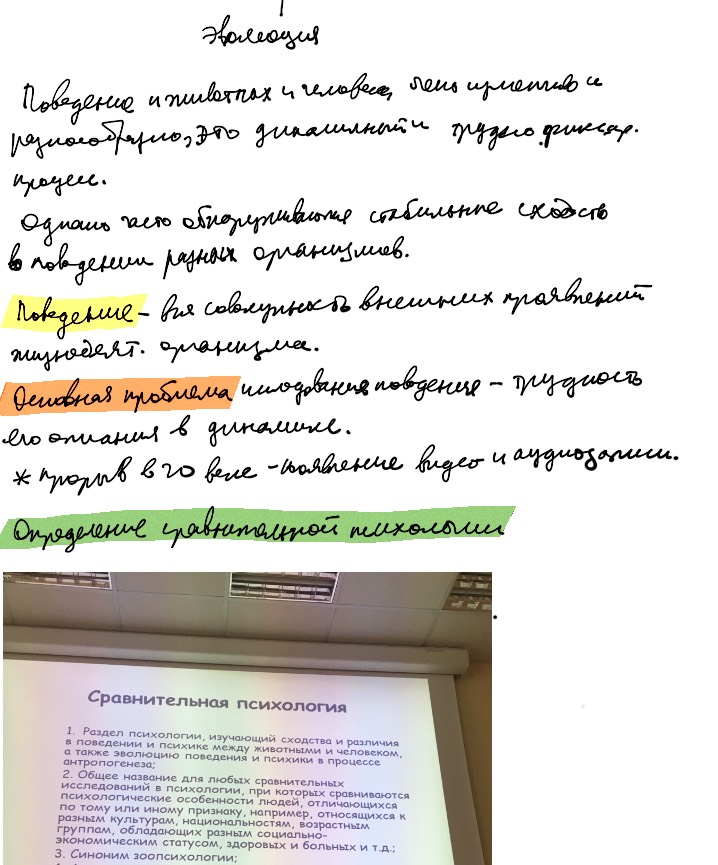 Эволюция
Поведение и животных и человека, очень изменчиво и
разнообразно, это динамичный и трудно фиксир.
процесс.
Однако часто обнаруживаются стабильные сходства
в поведении разных организмов.
Поведение – вся совокупность внешних проявлений
жизнедеят. организма.
Основная проблема исследования поведения – трудность
его описания в динамике.
* прорыв в 20 веке – появление видео и аудиозаписи.
Определение сравнительной психологии
Сравнительная психология
1. Раздел психологии, изучающий сходства и различия
в поведении и психике между животными и человеком,
а также эволюцию поведения и психики в процессе
антропогенеза;
2. Общее название для любых сравнительных
исследований в психологии, при которых сравниваются
психологические особенности людей, отличающихся
по тому или иному признаку, например, относящихся к
разным культурам, национальностям, возрастным
группам, обладающих разным социально-
экономическим статусом, здоровых и больных и т.д.;
3. Синоним зоопсихологии;